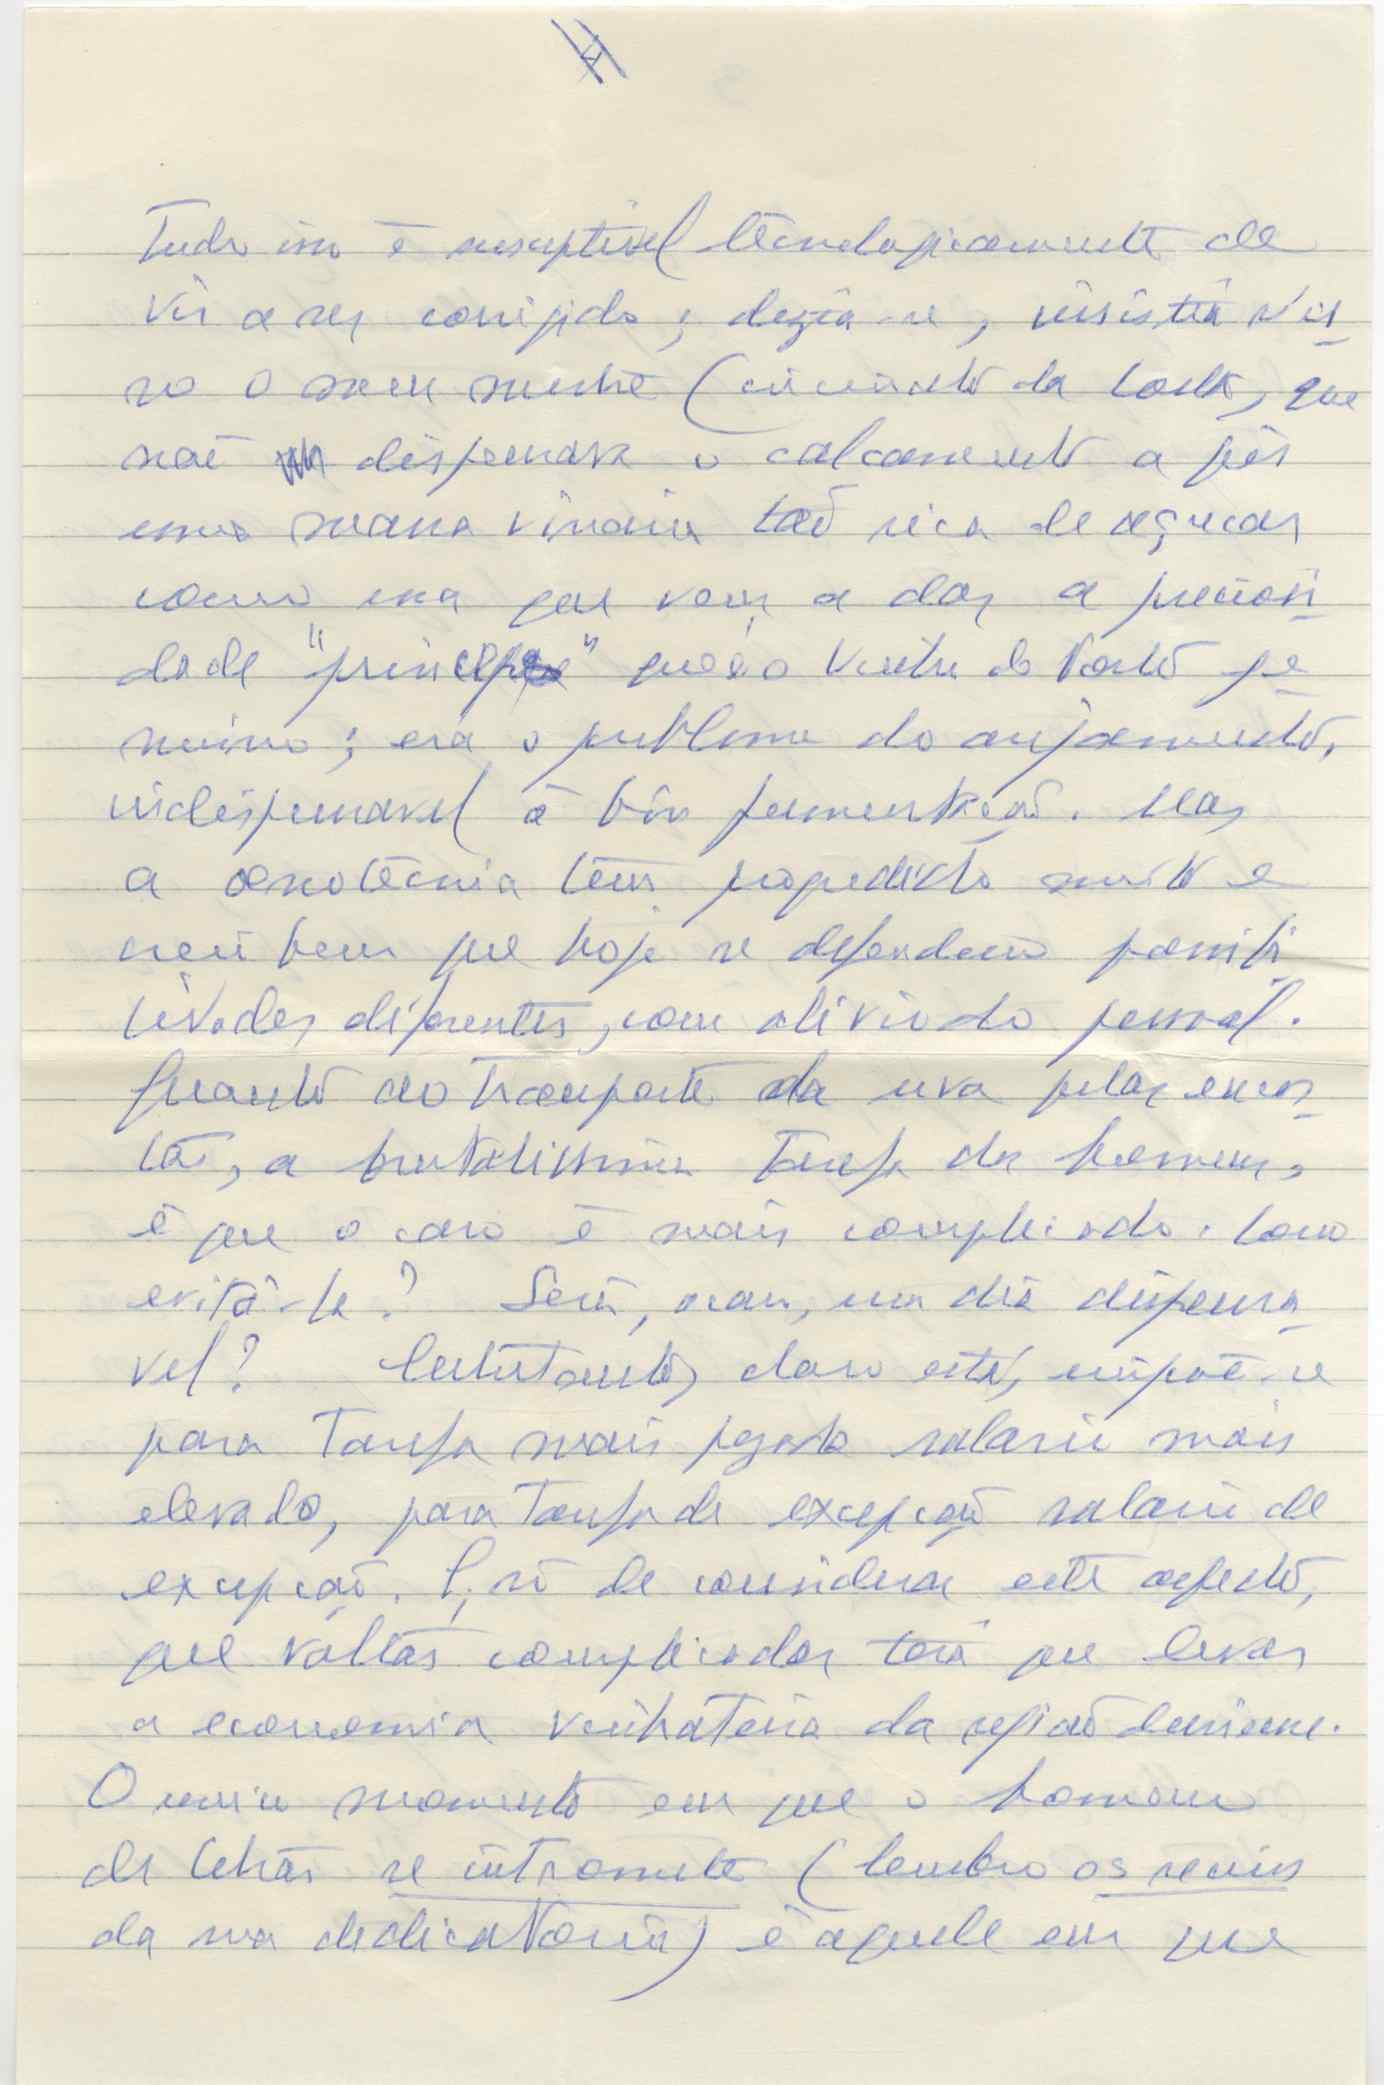 Tudo isso é susceptível tècnologicamente de
vir a ser corrigido; dizia-se, insistia nis
so o meu mestre ( da Costa, que
não dispensava o calcamento a pés
uma massa vinária tão rica de açucar
como essa que vem a dar a preciosi
dade "principe" que é o Vinho do Porto ge
nuino; era o problema do arejamento,
indispensavel à boa fermentação. Mas
a œnotecnia tem progredido muito e
creio bem que hoje se defendem possibi
lidades diferentes, com alivio do pessoal.
Quanto ao transporte da uva pelas encos
tas, a brutalissima tarefa dos homens,
é que o caso é mais complicado. Como
evitá-la? Será, acaso, um dia dispensa
vel? Entretanto, claro está, impõe-se
para tarefa mais pesada salario mais
elevado, para tarefa de excepção salario de
excepção. E, só de considerar este aspecto,
que voltas complicadas terá que levar
a economia vinhateira da região duriense.
O unico momento em que o homem
de letras se intromete (lembro os receios
da sua dedicatória) é aquele em que